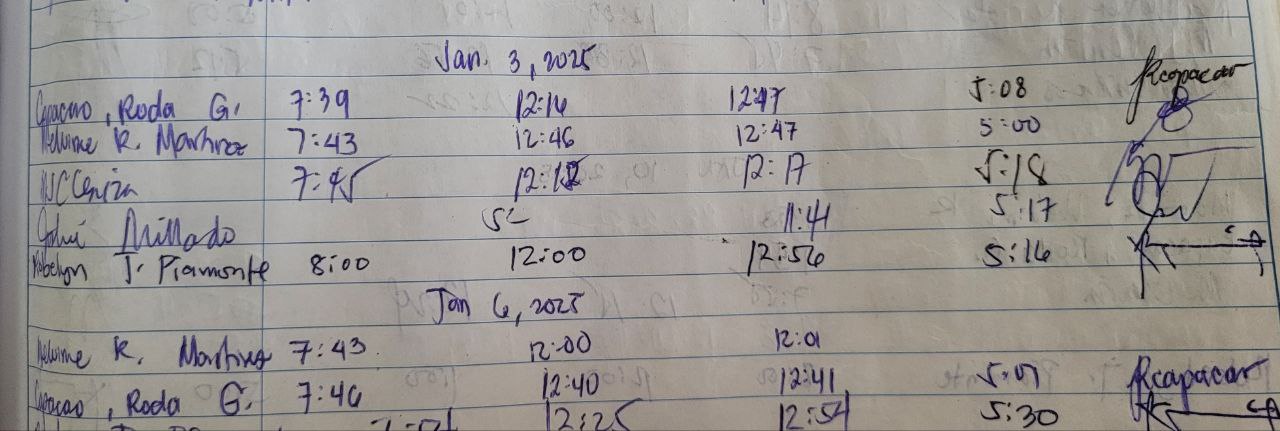 Jan. 3, 2025
Capacao, Roda G. 7:39 12:16 12:47 5:08 Rcapacao
Melvime R. Martinez 7:43 12:46 12:47 5:00
MCCeniza 7:45 12:12 12:17 5:18
Millado SL 11:41 5:17
J. Piamonte 8:00 12:00 12:56 5:16
Jan 6, 2025
Melvime R. Martinez 7:43 12:00 12:01
Capacao, Roda G. 7:46 12:40 12:41 5:01 Rcapacao
12:25 12:54 5:30